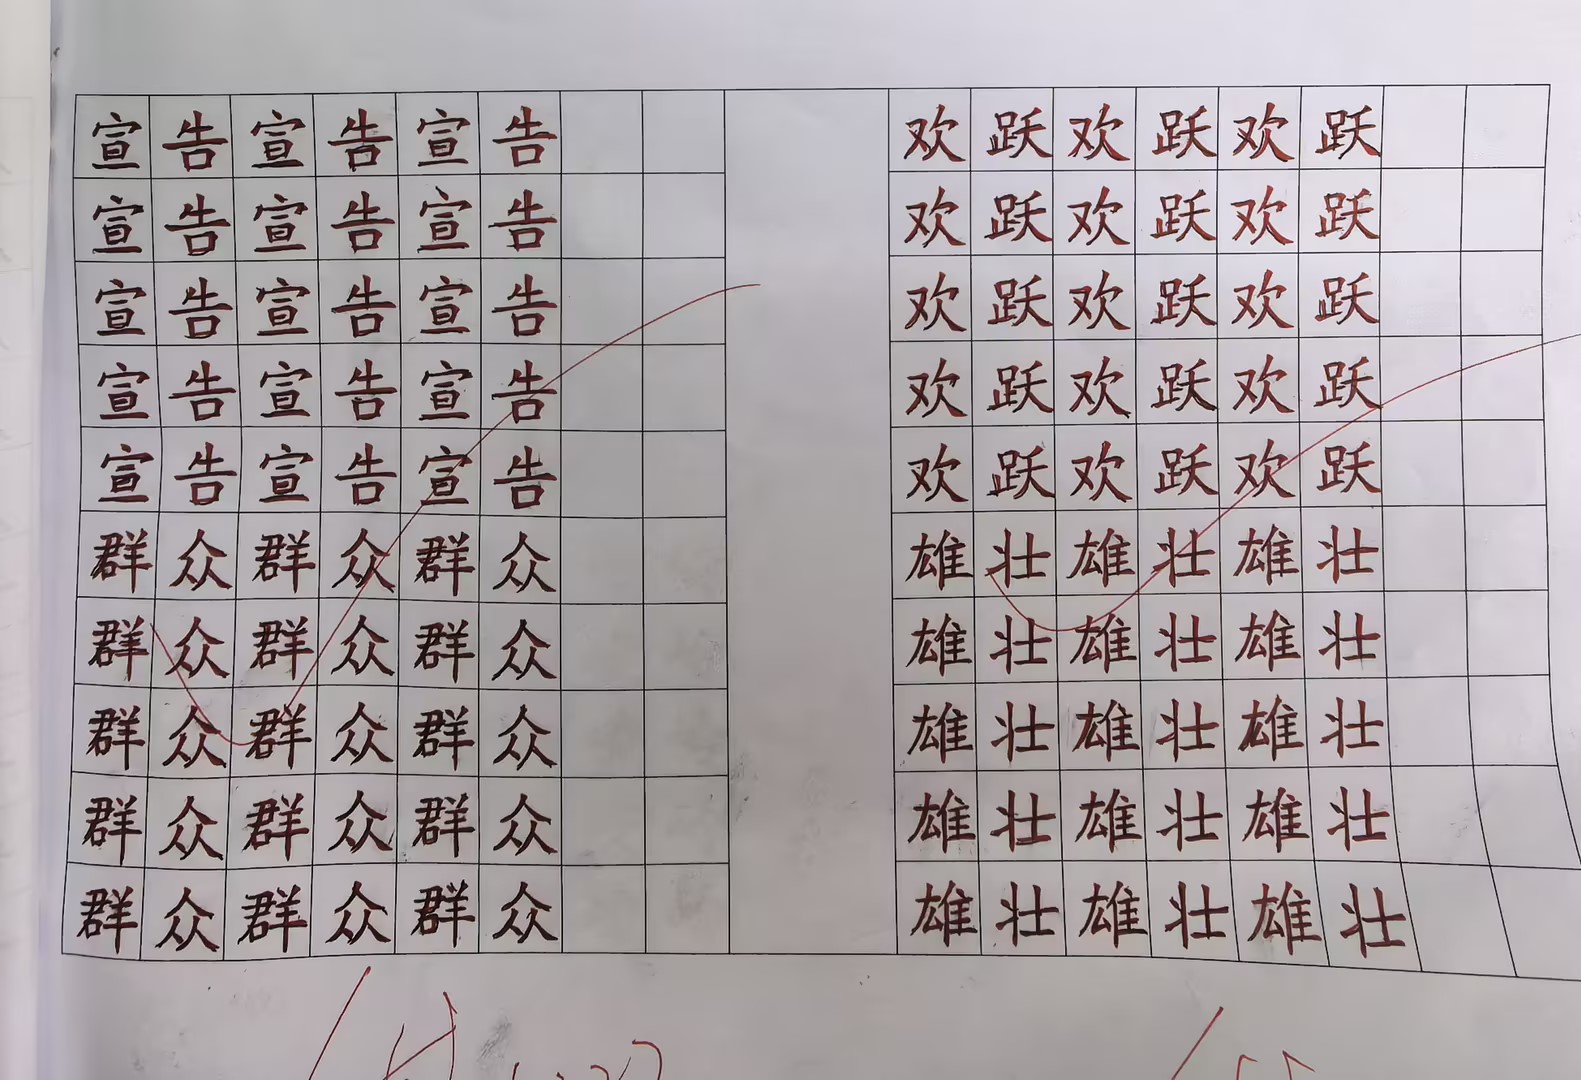 宣告宣告宣告
宣告宣告宣告
宣告宣告宣告
宣告宣告宣告
宣告宣告宣告
群众群众群众
群众群众群众
群众群众群众
群众群众群众
群众群众群众
欢跃欢跃欢跃
欢跃欢跃欢跃
欢跃欢跃欢跃
欢跃欢跃欢跃
欢跃欢跃欢跃
雄壮雄壮雄壮
雄壮雄壮雄壮
雄壮雄壮雄壮
雄壮雄壮雄壮
雄壮雄壮雄壮